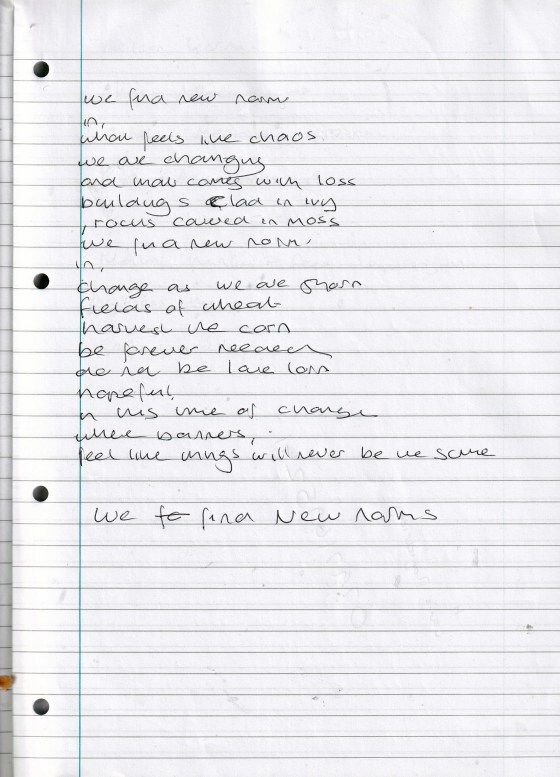 we find new norm
in,
what feels like chaos
we are changing
and that comes with loss
buildings clad in ivy
, rocks covered in moss
we find new norm.
in,
change as we are shorn
fields of wheat
harvest the corn
be forever needed
do not be love lorn
hopeful,
in this time of change
where banners,
feel like things will never be the same
We find New norms